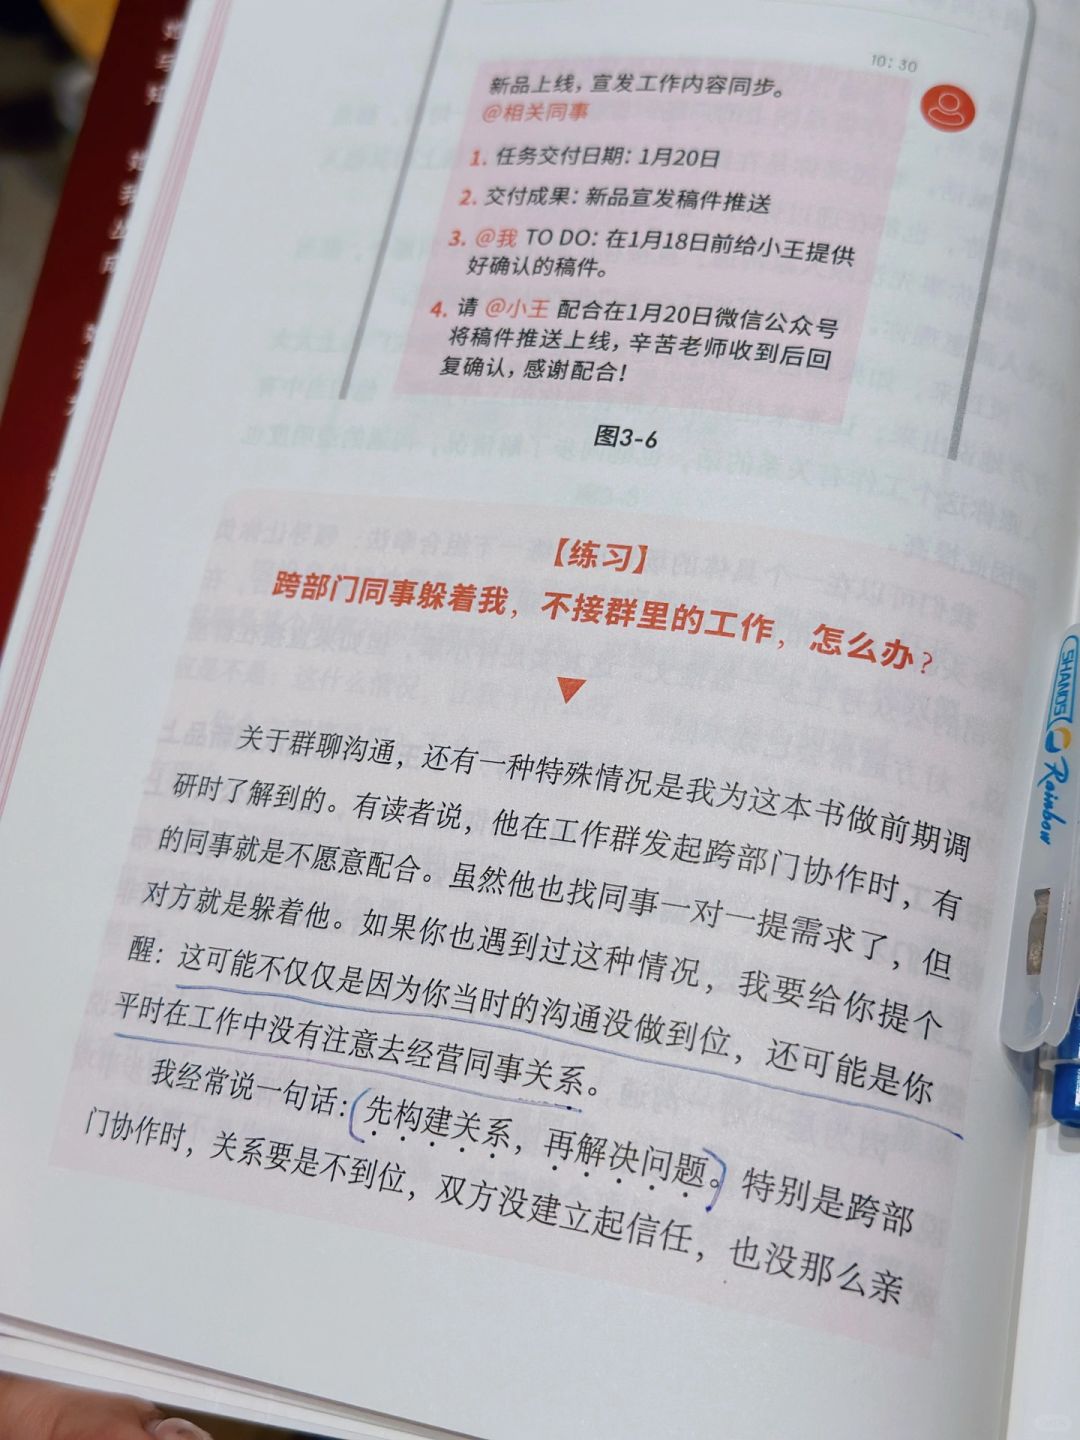 10:30
新品上线，宣发工作内容同步。
@相关同事
1. 任务交付日期：1月20日
2. 交付成果：新品宣发稿件推送
3. @我 TO DO：在1月18日前给小王提供
好确认的稿件。
4. 请 @小王 配合在1月20日微信公众号
将稿件推送上线，辛苦老师收到后回
复确认，感谢配合！
图3-6
【练习】
跨部门同事躲着我，不接群里的工作，怎么办？
关于群聊沟通，还有一种特殊情况是我为这本书做前期调
研时了解到的。有读者说，他在工作群发起跨部门协作时，有
的同事就是不愿意配合。虽然他也找同事一对一提需求了，但
对方就是躲着他。如果你也遇到过这种情况，我要给你提个
醒：这可能不仅仅是因为你当时的沟通没做到位，还可能是你
平时在工作中没有注意去经营同事关系。
我经常说一句话：先构建关系，再解决问题。特别是跨部
门协作时，关系要是不到位，双方没建立起信任，也没那么亲
SHANDS
Rainbow